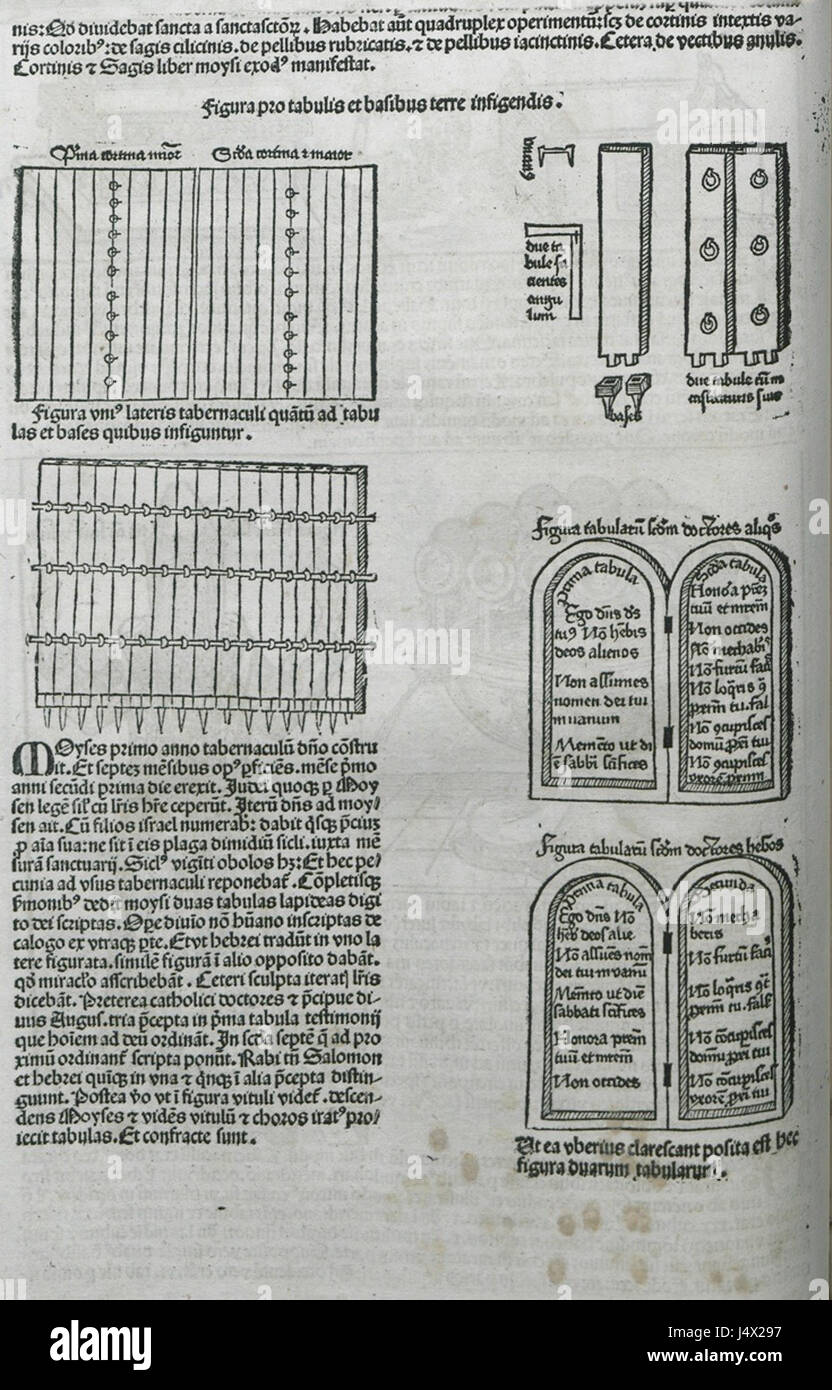 nis: Qd diuidebat sancta a sanctasctoꝝ. Habebat aūt quadruplex operimentū: scꝫ de cortinis intextis va-
rijs coloribꝰ: de sagis cilicinis. de pellibus rubricatis. ⁊ de pellibus iacinctinis. Cetera de vectibus anulis.
Cortinis ⁊ Sagis liber moysi exodꝰ manifestat.
Figura pro tabulis et basibus terre infigendis.
Pīna cortina mīor
Scďa cortina ⁊ maior
due ta
bule fa
cientes
angu
lum
bases
due tabule cum
Figura vniꝰ lateris tabernaculi quātū ad tabu
las et bases quibus infiguntur.
Moyses primo anno tabernaculū dño cōstru
xit. Et septeꝫ mēsibus opꝰ ꝑficiēs. mēse pⁱmo
anni secūdi prima die erexit. Judei quoqꝫ ꝑ Moy
sen legē sil' cū lr̄is hr̄e ceperūt. Iterū dn̄s ad moy/
sen ait. Cū filios israel numerabꝭ: dabit qͥsqꝫ p̄ciuꝫ
ꝓ aīa sua: ne sit ī eis plaga dimidiū sicli. iuxta mē
surā sanctuarij. Siclꝰ vigīti obolos hꝫ: Et hec pe/
cunia ad vsus tabernaculi reponebat̄. Cōpletisqꝫ
f̄monibꝰ dedit moysi duas tabulas lapideas digi
to dei scriptas. Ope diuīo nō hūano inscriptas de
calogo ex vtraqꝫ ꝑte. Et vt hebrei tradūt in vno la
tere figurata. similē figurā ī alio opposito dabāt.
qď miraclo asscribebāt. Ceteri sculpta iteratꝭ lr̄is
dicebāt. Preterea catholici doctores ⁊ p̄cipue di-
uus Augus. tria p̄cepta in pⁱma tabula testimonij
que hoīem ad deū ordināt. In scďa septē q̄ ad pro
ximū ordinant̄ scripta ponūt. Rabi tn̄ Salomon
et hebrei quīqꝫ in vna ⁊ qⁱnqꝫ ī alia p̄cepta distin-
guunt. Postea ꝟo vt ī figura vituli videt̄. descen-
dens Moyses ⁊ vidēs vitulū ⁊ choros iratꝰ pro/
iecit tabulas. Et confracte sunt.
Figura tabularū scďm doctores aliqͦs
Prima tabula
Ego dn̄s dꝰs
tuꝰ Nō hēbis
deos alienos
Non assumes
nomen dei tui
in vanum
Memēto vt di
ē sabbi scīfices
Scďa tabula
Honora ptēꝫ
tuū et mrēm
Non occides
Nō mechabꝭ
Nō furtū faciꝰ
Nō loqͥris ꝯ
prīm tu. fal
Nō ꝯcupisces
domū ꝓxi tui
Nō ꝯcupisces
vxorē ꝓximi
Figura tabularū scďm doctores hebꝰos
Prima tabula
Ego dn̄s Nō
heb deos alie
Nō assūes nom̄
dei tui in vanū
Memēto vt diē
sabbati scīfices
Honora prēm
tuū et mrēm
Non occides
Secunda
Nō mecha
beris
Nō furtū faciꝰ
Nō loqͥris ꝯt
prīm tu. fals̄
Nō cōcupisces
domū ꝓxi tui
Nō cōcupisces
vxorē ꝓxi tui
Ut ea vberius clarescant posita est hec
figura duarum tabularum.
alamy
www.alamy.com
Image ID: J4X297